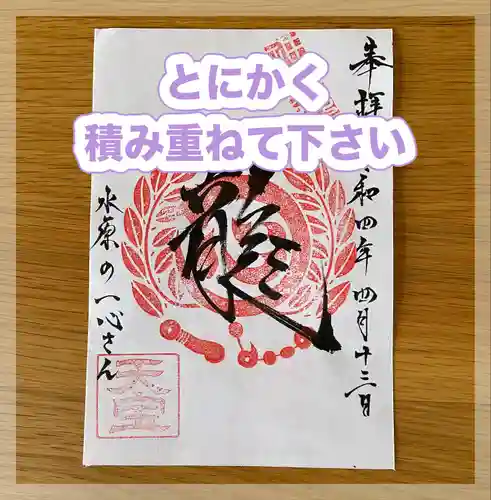 とにかく
積み重ねて下さい
奉拝
和四年四月十三日
龍
水原の一心さん
天宝